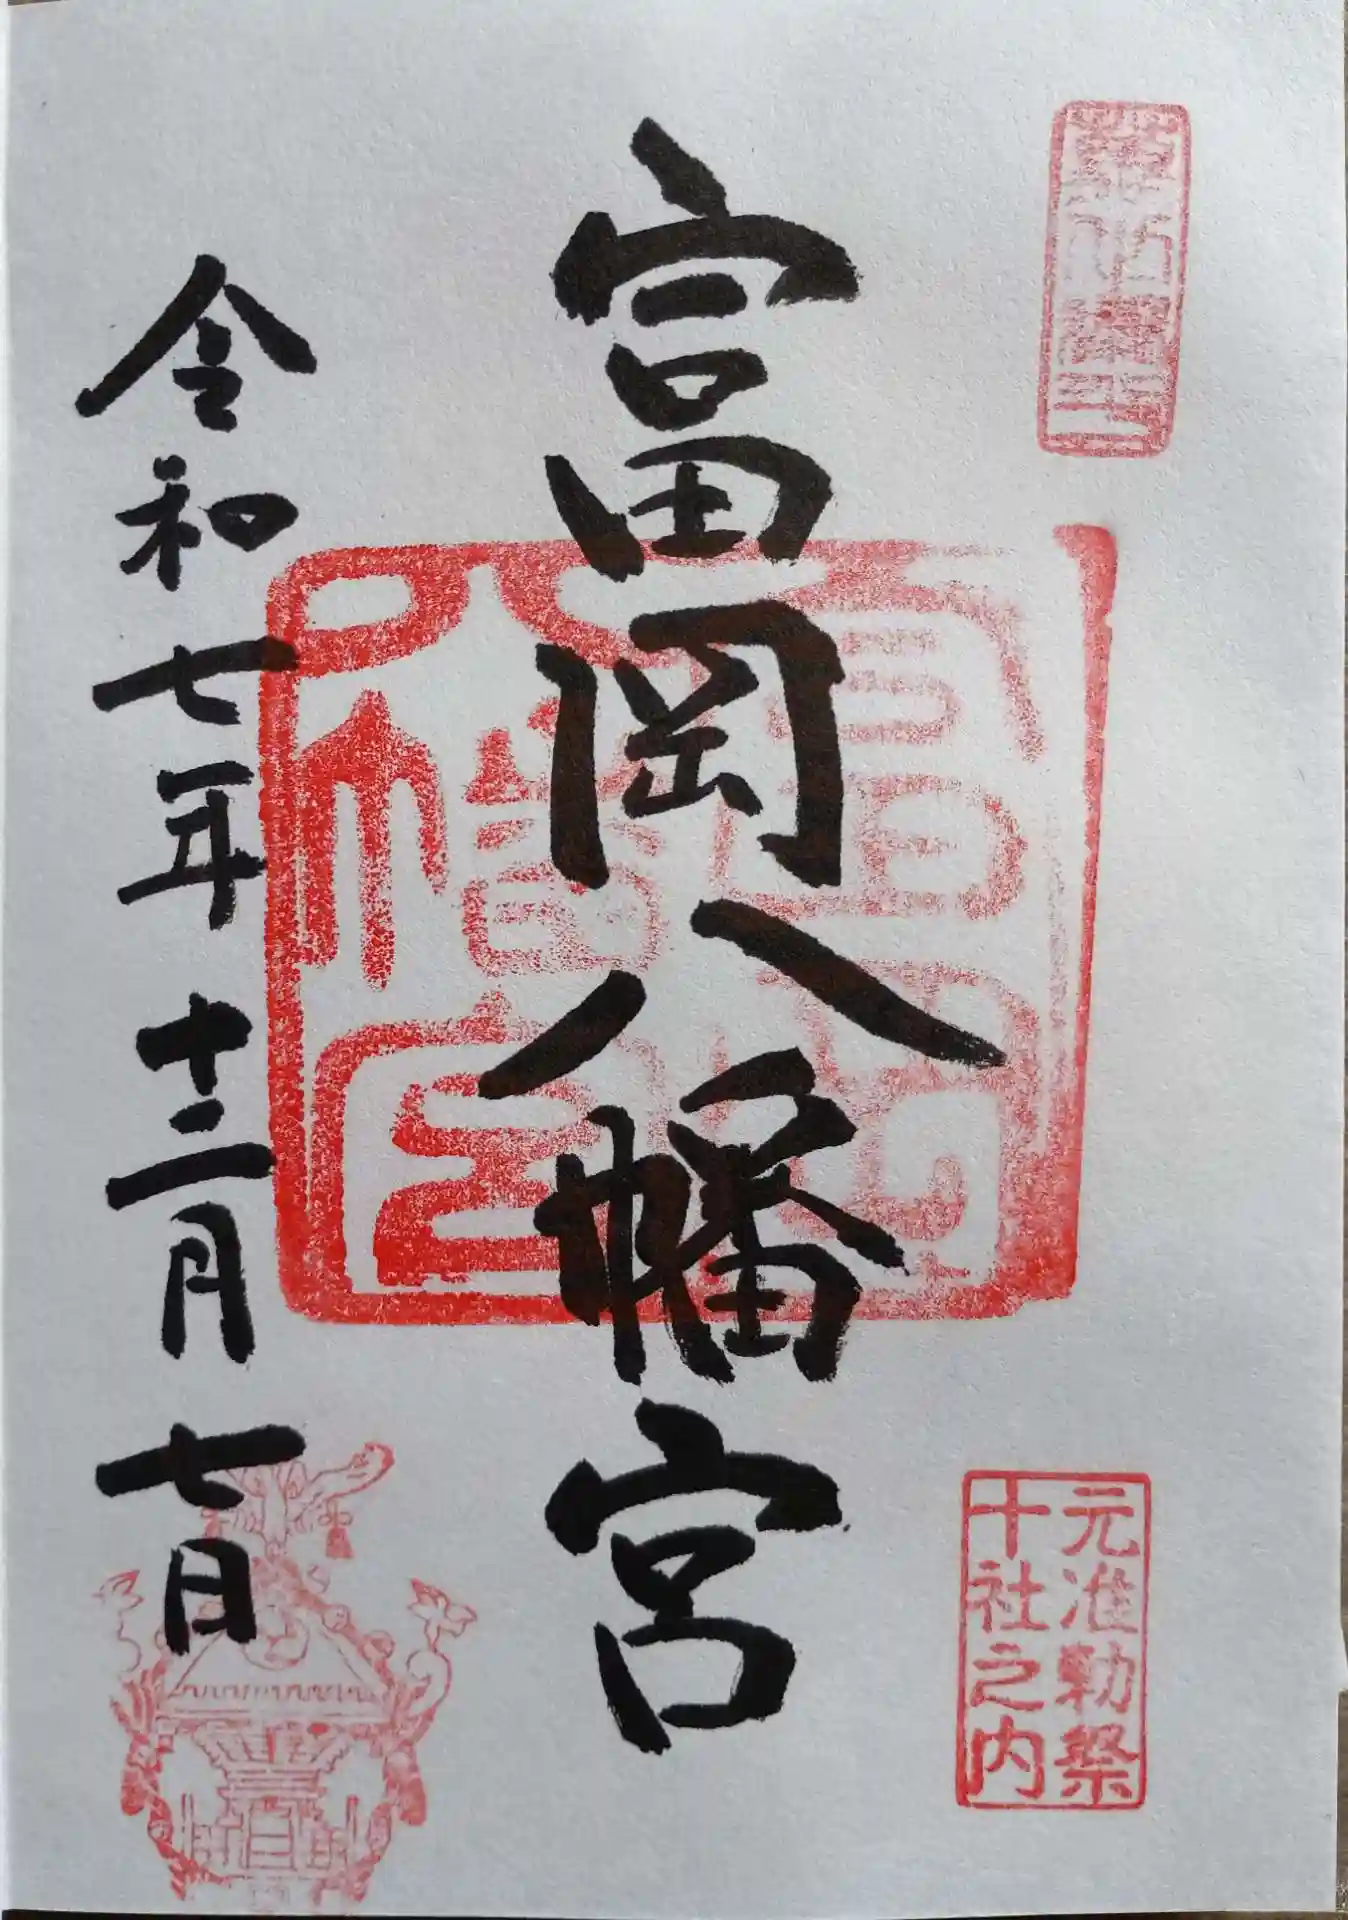 富岡八幡宮
元准勅祭
十社之内
富岡
八幡宮
令和七年十二月七日